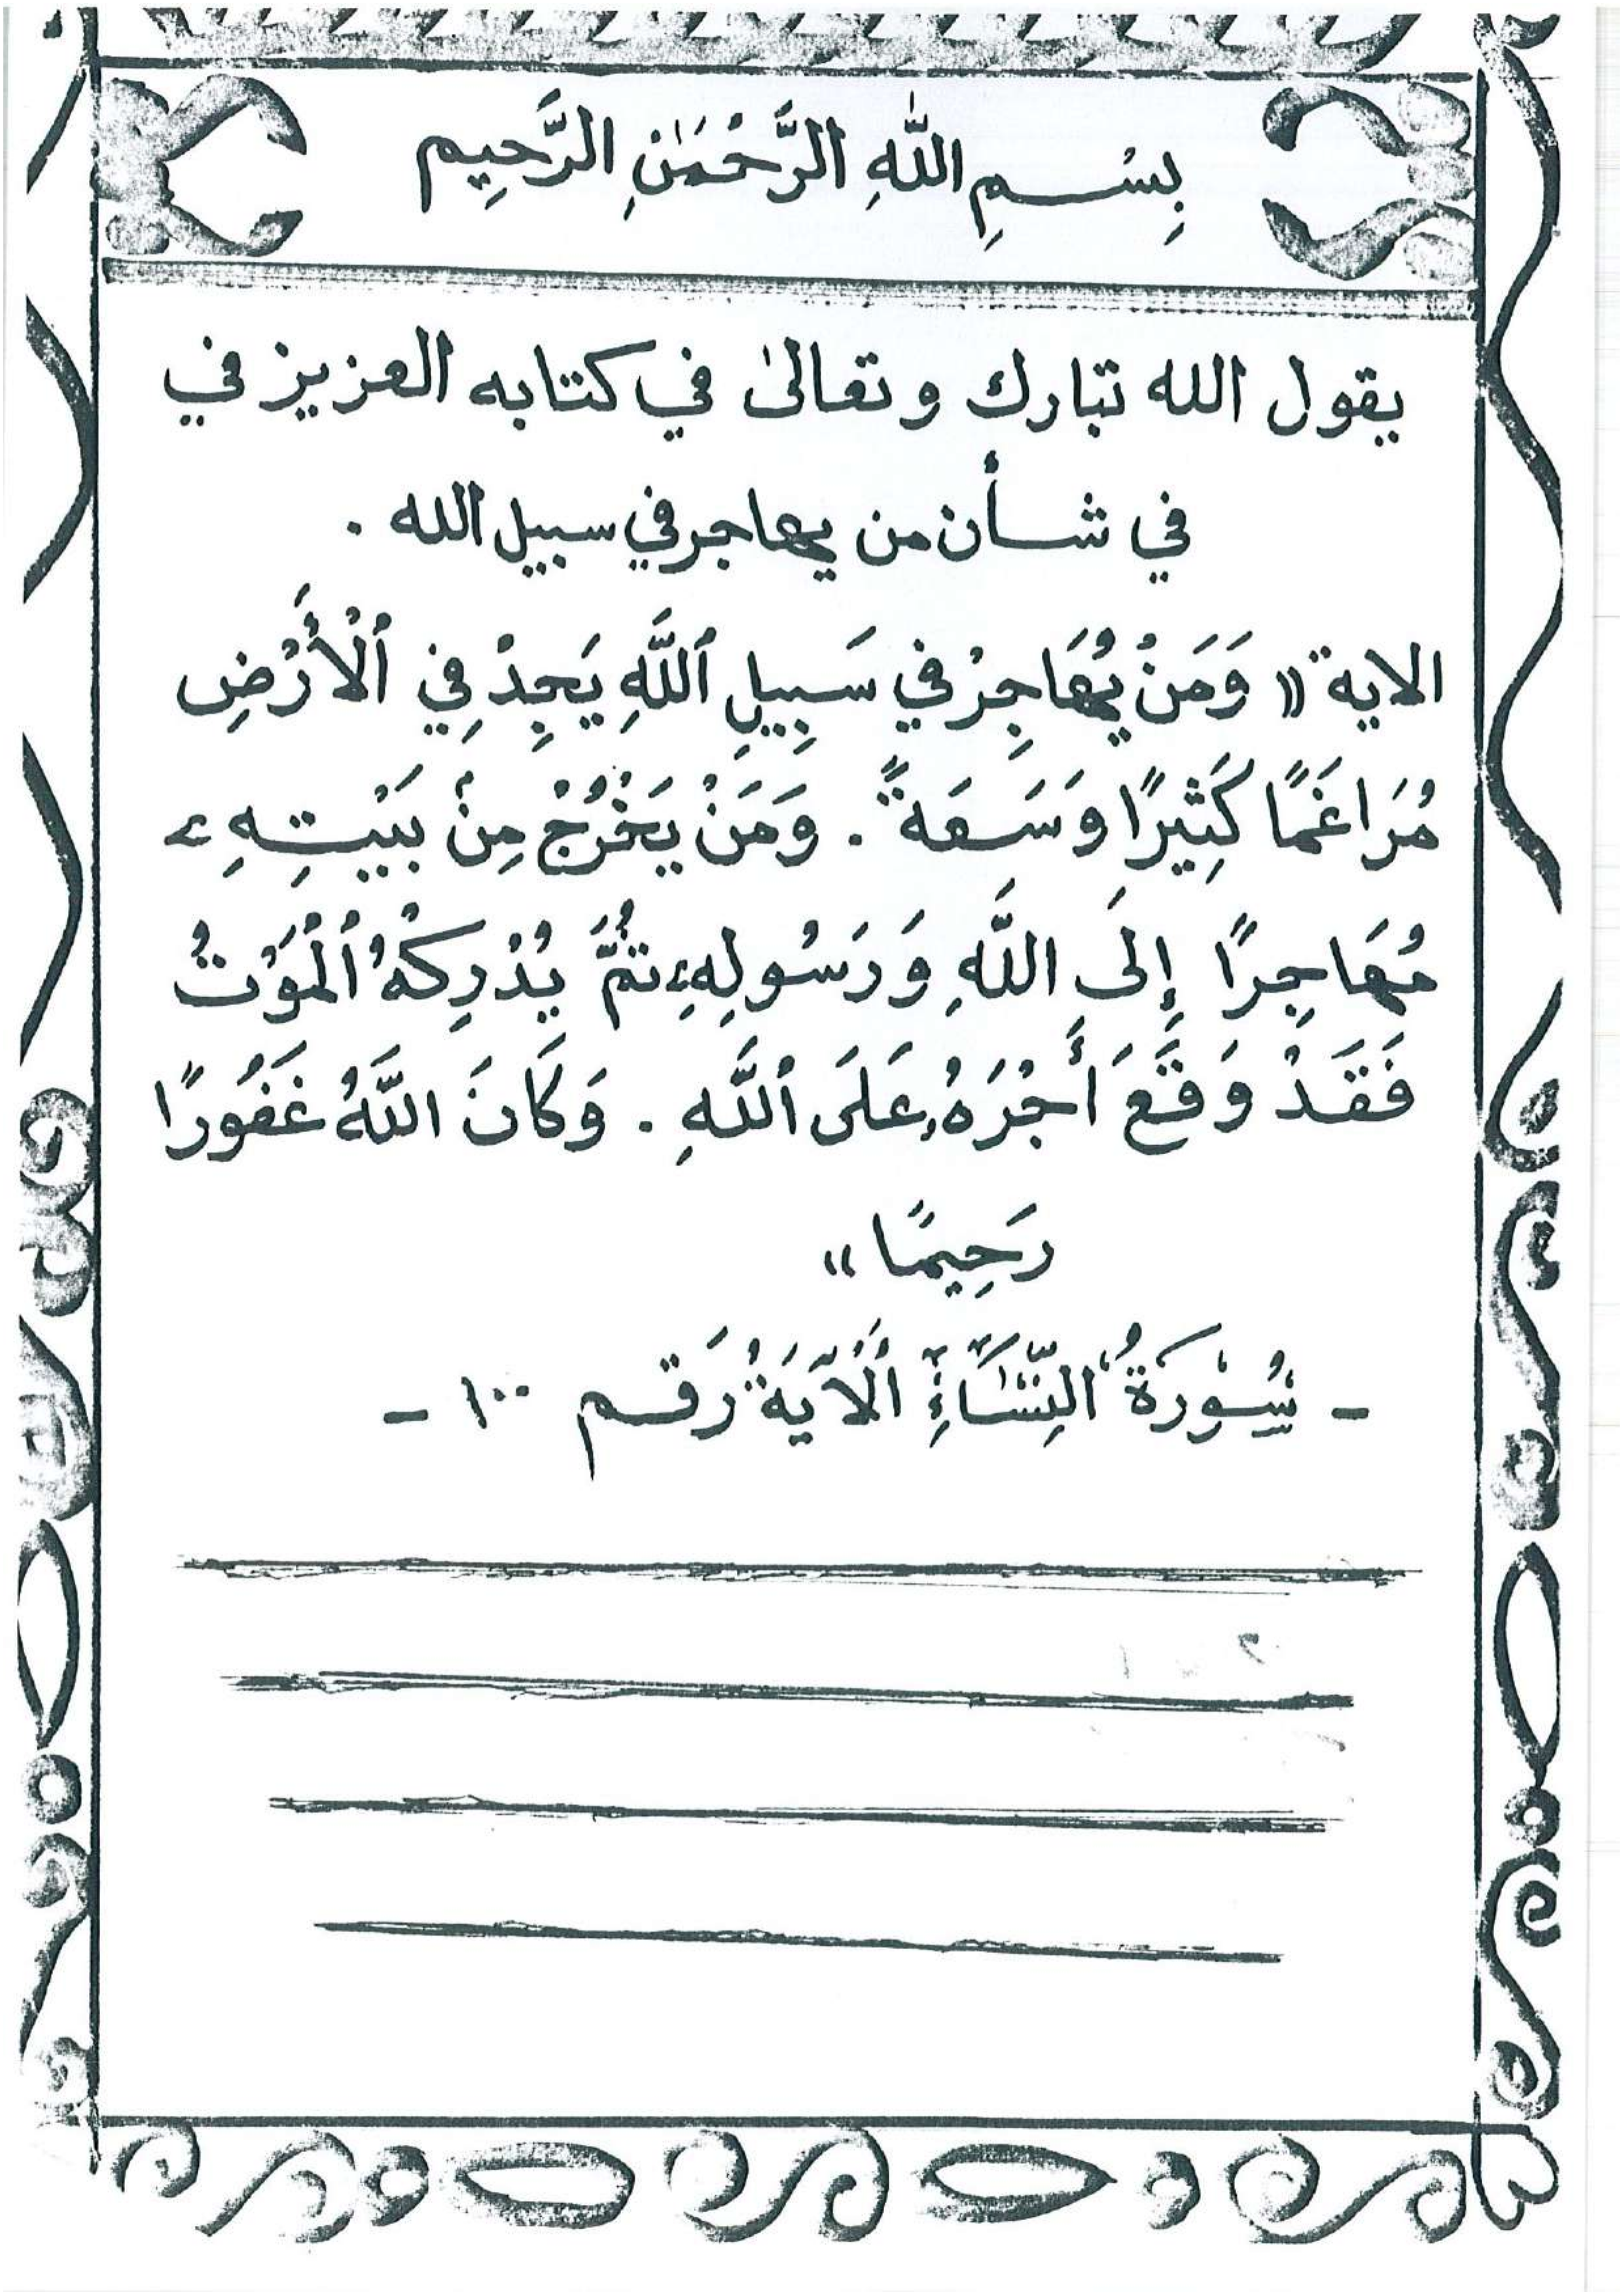 بِسْمِ اللَّهِ الرَّحْمَٰنِ الرَّحِيم
يقول الله تبارك وتعالىٰ في كتابه العزيز في
في شأن من يهاجر في سبيل الله .
الاية " وَمَنْ يُهَاجِرْ في سَبِيلِ ٱللَّهِ يَجِدْ فِي ٱلْأَرْضِ
مُرَاغَمًا كَثِيرًا وَسَعَةً . وَمَنْ يَخْرُجْ مِنْ بَيْتِهِۦ
مُهَاجِرًا إِلَى اللَّهِ وَرَسُولِهِۦ ثُمَّ يُدْرِكْهُ ٱلْمَوْتُ
فَقَدْ وَقَعَ أَجْرُهُۥ عَلَى ٱللَّهِ . وَكَانَ اللَّهُ غَفُورًا
رَحِيمًا "
- سُورَةُ النِّسَاءِ ٱلْآيَةُ رَقم ١٠٠ -